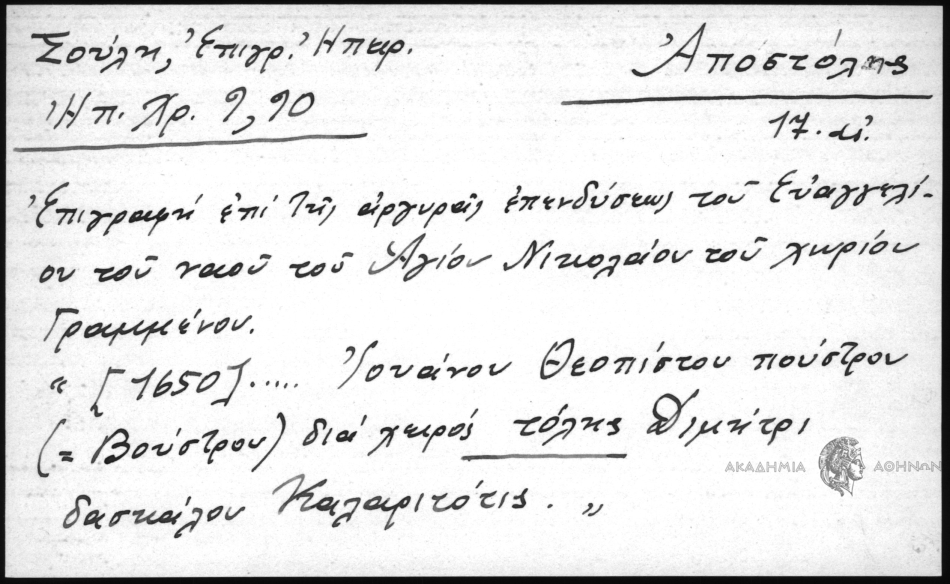 Σούλη, Ἐπιγρ. Ἠπειρ.
Ἀποστόλης
Ἠπ. Χρ. 9, 90
17. αἰ.
Ἐπιγραφή ἐπί τῆς ἀργυρᾶς ἐπενδύσεως τοῦ Εὐαγγελί-
ου τοῦ ναοῦ τοῦ Ἁγίου Νικολάου τοῦ χωρίου
Γραμμένου.
" [1650]..... Ἰουάνου Θεοπίστου πούστρου
(= Βούστρου) διά χειρός τόλης Διμήτρι
δασκάλου Καλαριτότις. "
ΑΚΑΔΗΜΙΑ ΑΘΗΝΩΝ